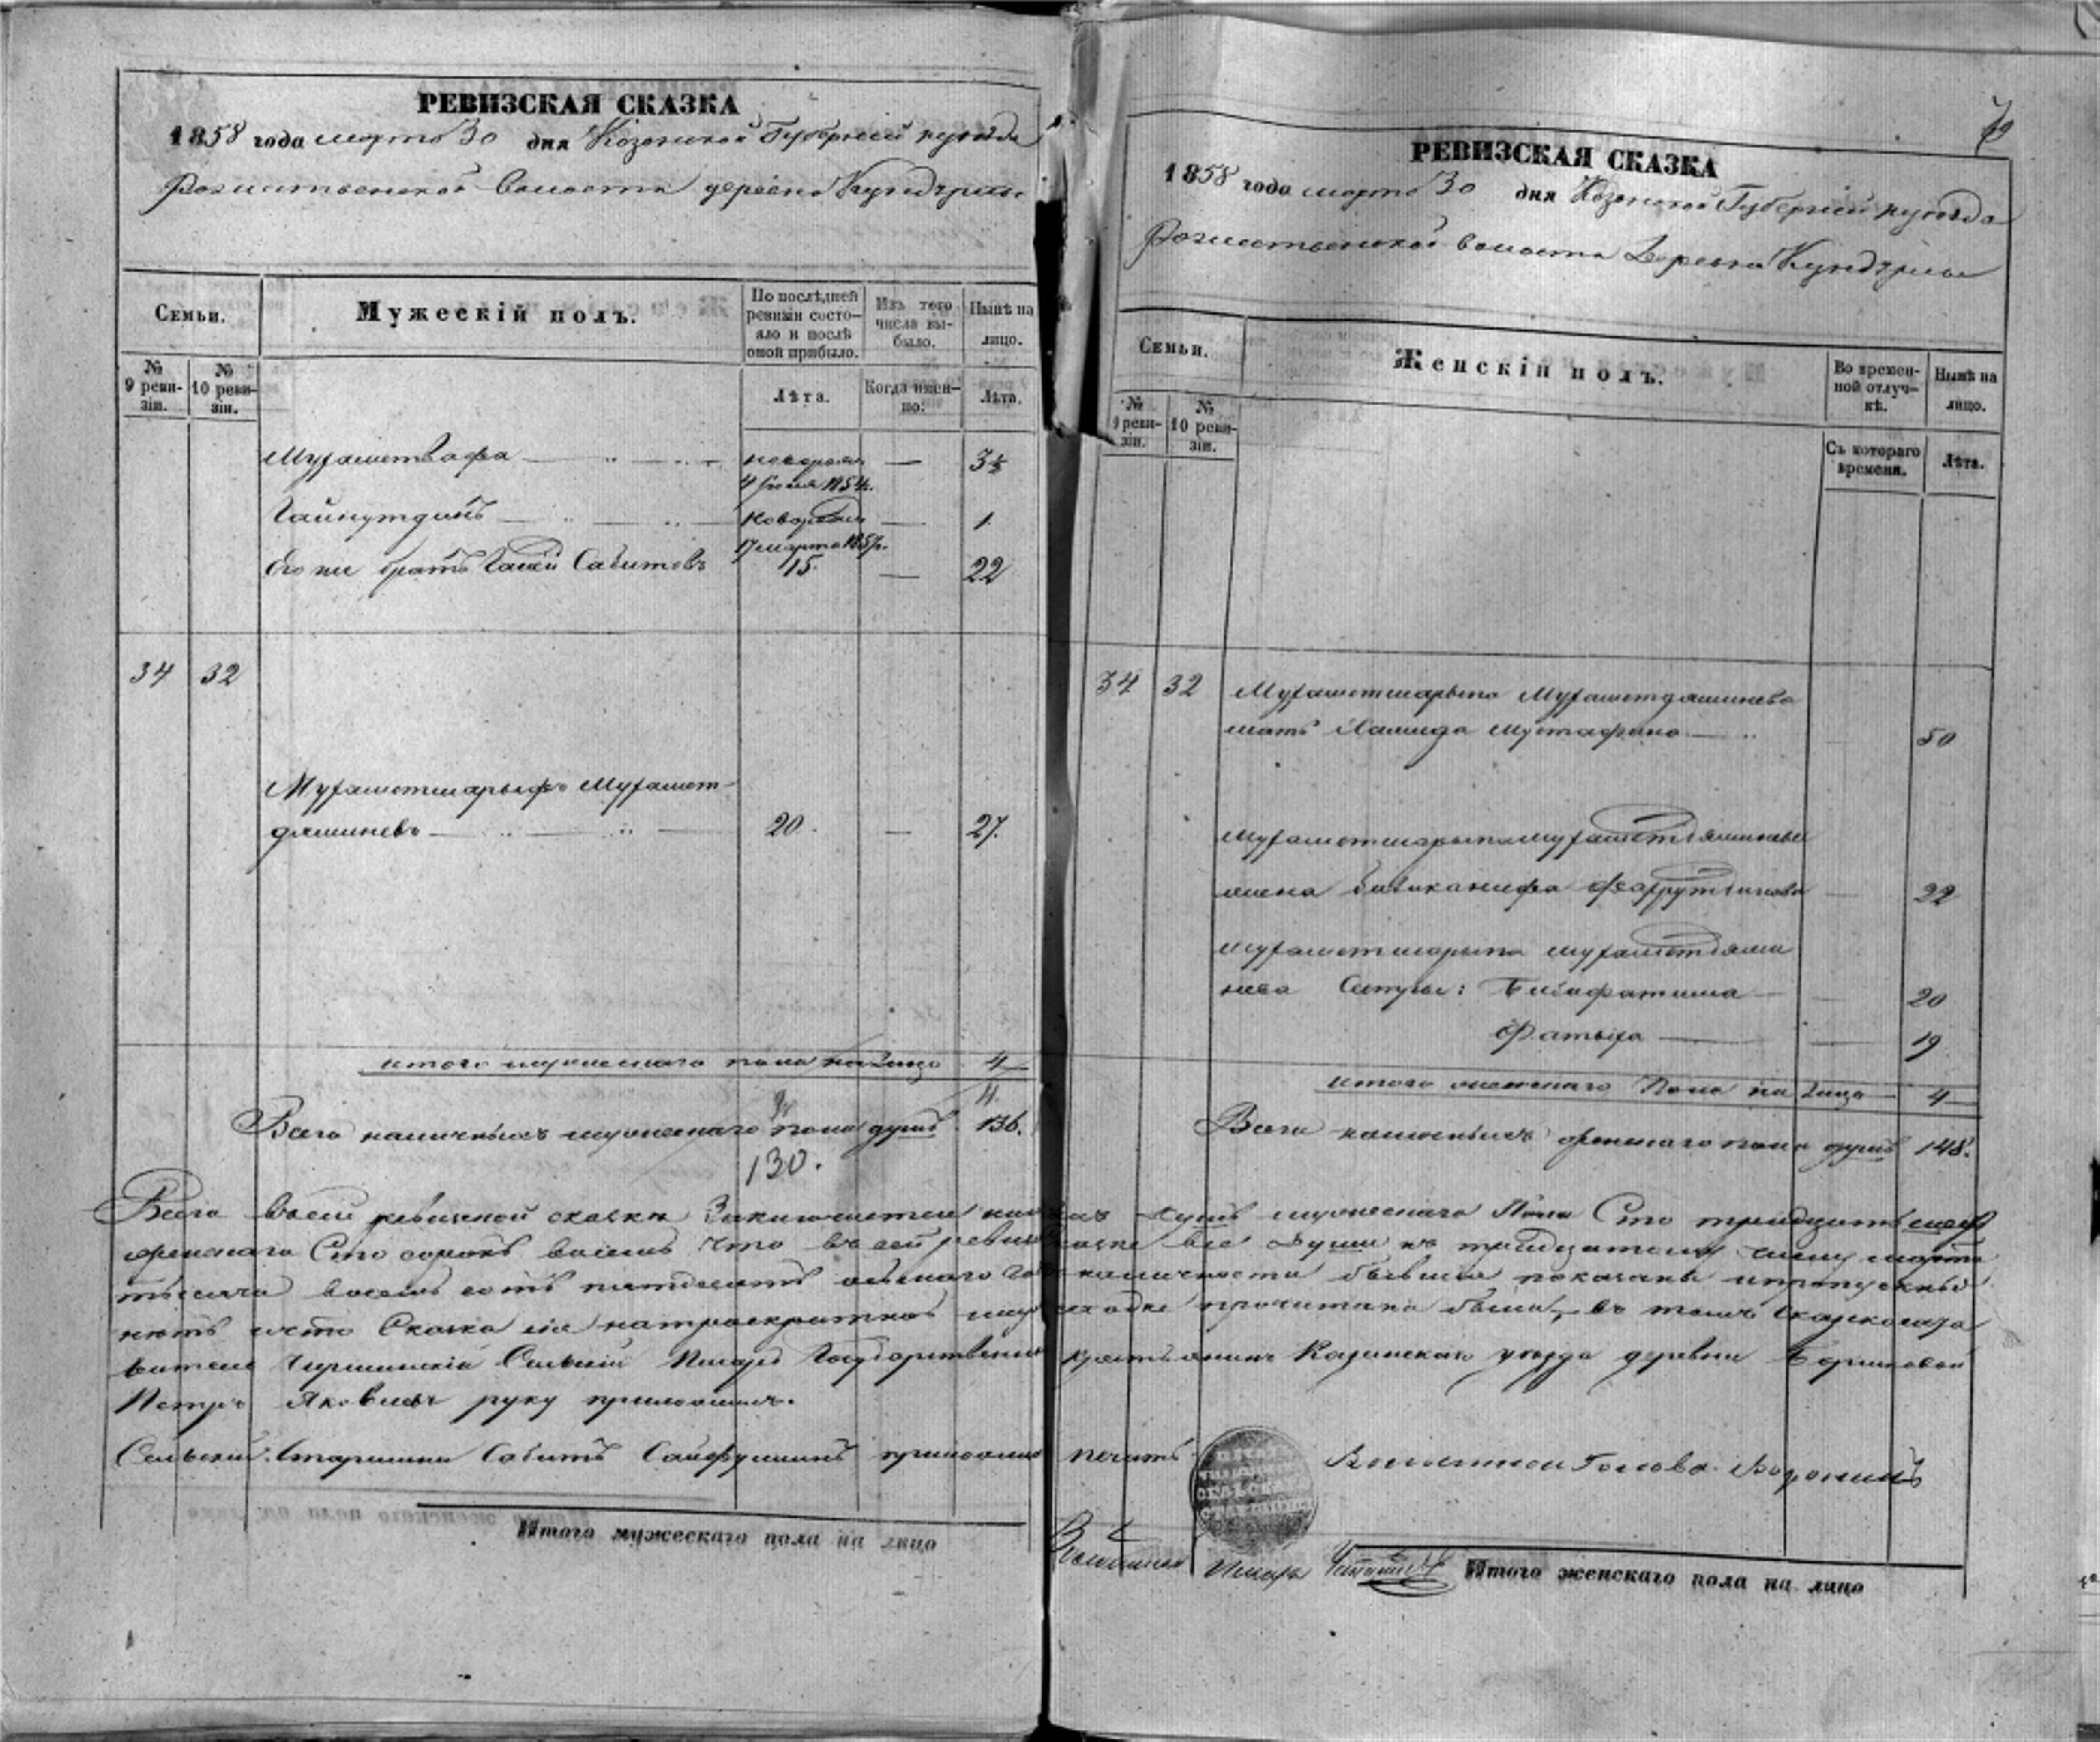 РЕВИЗСКАЯ СКАЗКА
1858 года марта 30 дня Казанской Губернии и уезда
Рожественской волости деревни Кундурлы
Семьи.
Мужескій полъ.
По послѣдней ревизіи состо-яло и послѣ оной прибыло.
Изъ того числа вы-было.
Нынѣ на лицо.
№ 9 реви-зіи.
№ 10 реви-зіи.
Лѣта.
Когда имен-но:
Лѣта.
Мухаметвафа новорож — 3½
4 Іюля 1854.
Гайнутдинъ новорож — 1
17 марта 1857.
Его же братъ Сабитовъ 15 — 22
34 32
Мухаметшарыфъ Мухамет-
дяминевъ 20 — 27.
итого мужескаго пола на лицо 4
Всего наличныхъ мужескаго пола душъ 136.
130.
РЕВИЗСКАЯ СКАЗКА
1858 года марта 30 дня Казанской Губернии и уезда
Рожественской волости Деревни Кундурлы
Семьи.
Женскій полъ.
Во времен-ной отлуч-кѣ.
Нынѣ на лицо.
№ 9 реви-зіи.
№ 10 реви-зіи.
Съ котораго времени.
Лѣта.
34 32 Мухаметшарыпа Мухаметдяминева
мать Хамида Мустафина 50
Мухаметшарыпа Мухаметдяминева
жена Бибиханифа Фахрутдинова — 22
Мухаметшарыпа Мухаметдями
нева Сестры: Бибифатима — 20
Фатыха — 19
итого женскаго Пола на лицо 4
Всего наличныхъ женскаго пола душъ 148.
Всего въ сей ревизской сказки Заключается душъ мужескаго Пола Сто тридцать шесть
женскаго Сто сорокъ восемь Что въ сей все Души къ тридцатому числу марта
тысяча восемь сотъ пятдесятъ осьмаго наличности бывшие показаны и пропускныхъ
нетъ и что Сказка сія на прочитана была, въ томъ
Сельскій Писарь Государственный крестьянинъ Казанскаго уезда деревни
Петръ Яковлевъ руку приложилъ.
Сельский Старшина Сабитъ Сайфуллинъ приложилъ печать.
Волостной Голова Воронинъ
Волостной Писарь
Итого мужескаго пола на лицо
Итого женскаго пола на лицо